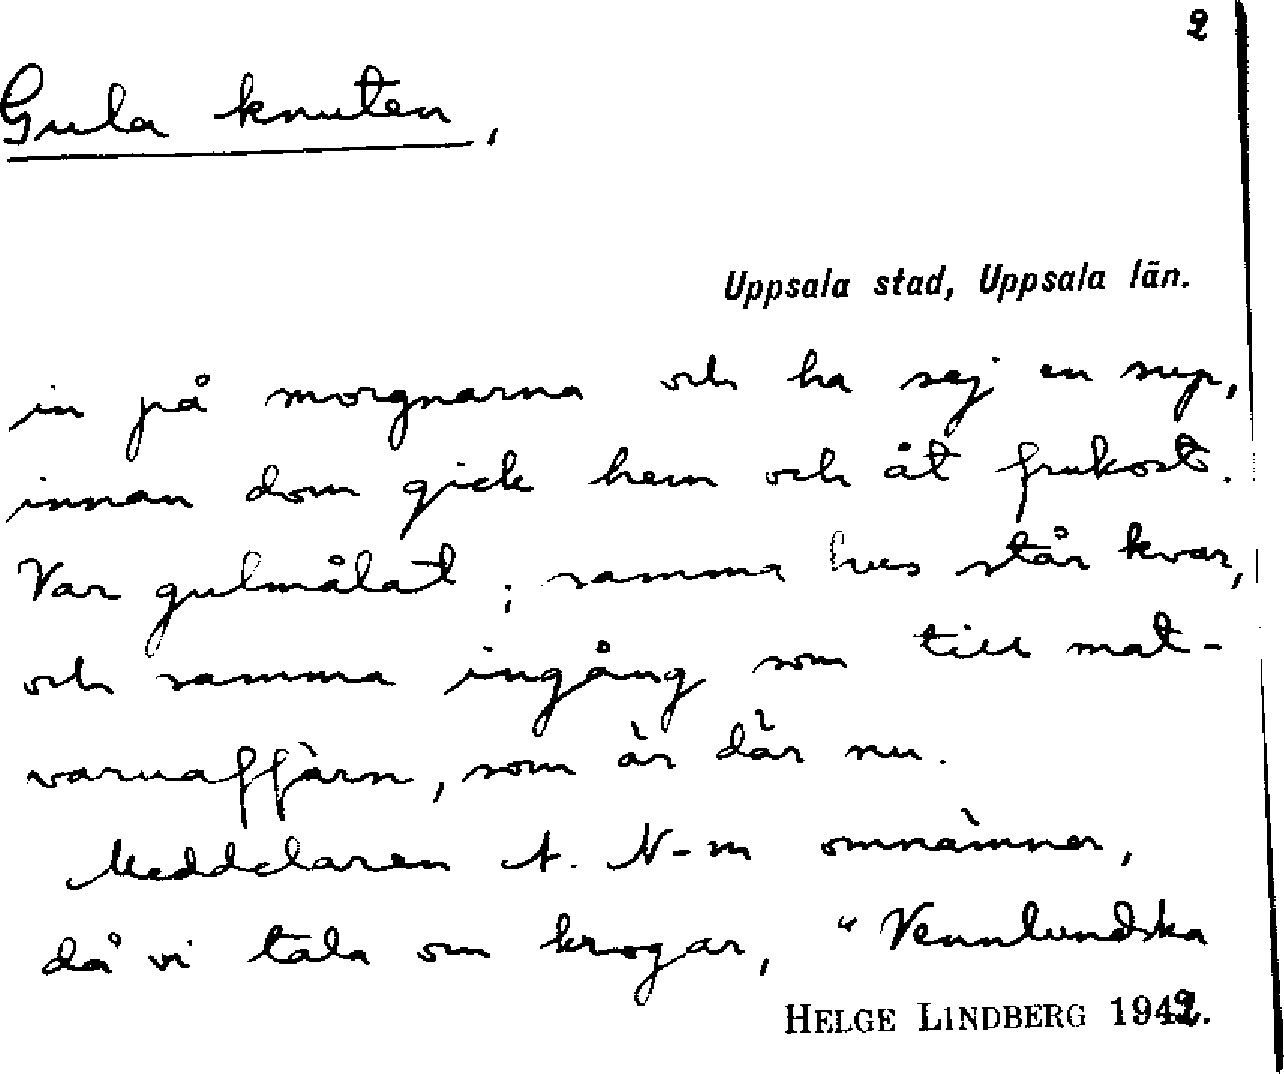 2
Gula knuten,
Uppsala stad, Uppsala län.
in på morgnarna och ha sej en sup,
innan dom gick hem och åt frukost.
Var gulmålat; samma hus står kvar,
och samma ingång som till mat-
varuaffärn, som är där nu.
Meddelaren A. N-m omnämner,
då vi tala om krogar, "Vennlundska
HELGE LINDBERG 1942.